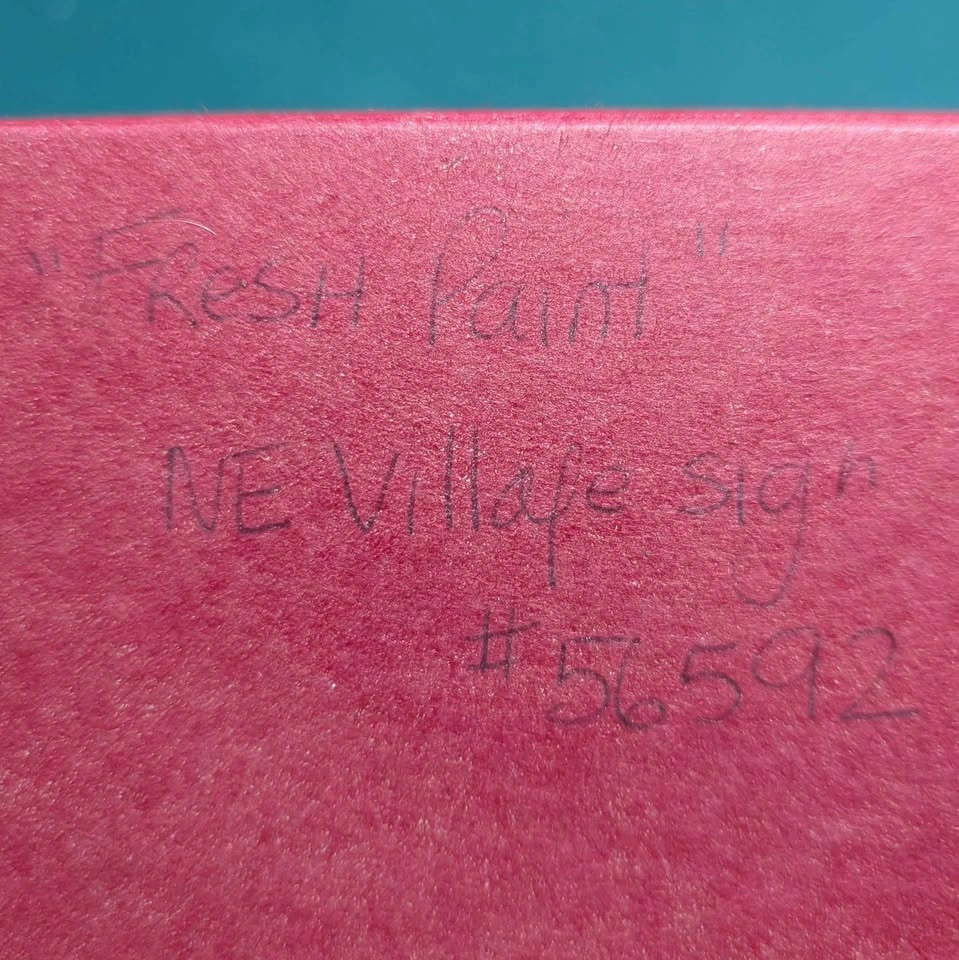 "FResH Paint"
NE Village sign
#56592